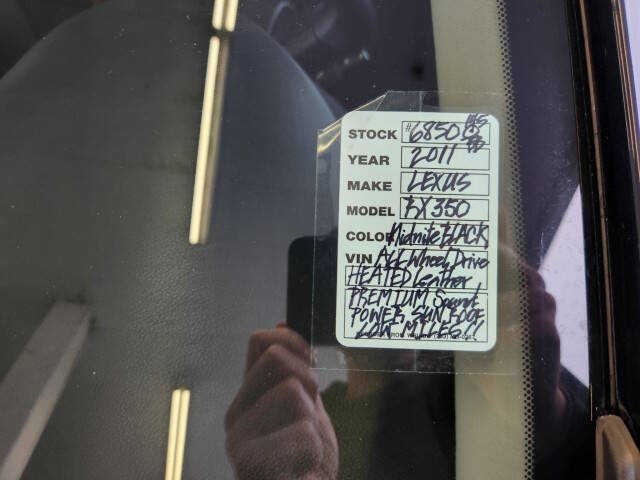 STOCK #6850
YEAR 2011
MAKE LEXUS
MODEL RX350
COLOR Midnite BLACK
VIN All Wheel Drive
HEATED Leather
PREMIUM Sound
POWER SUN ROOF
LOW MILES!!